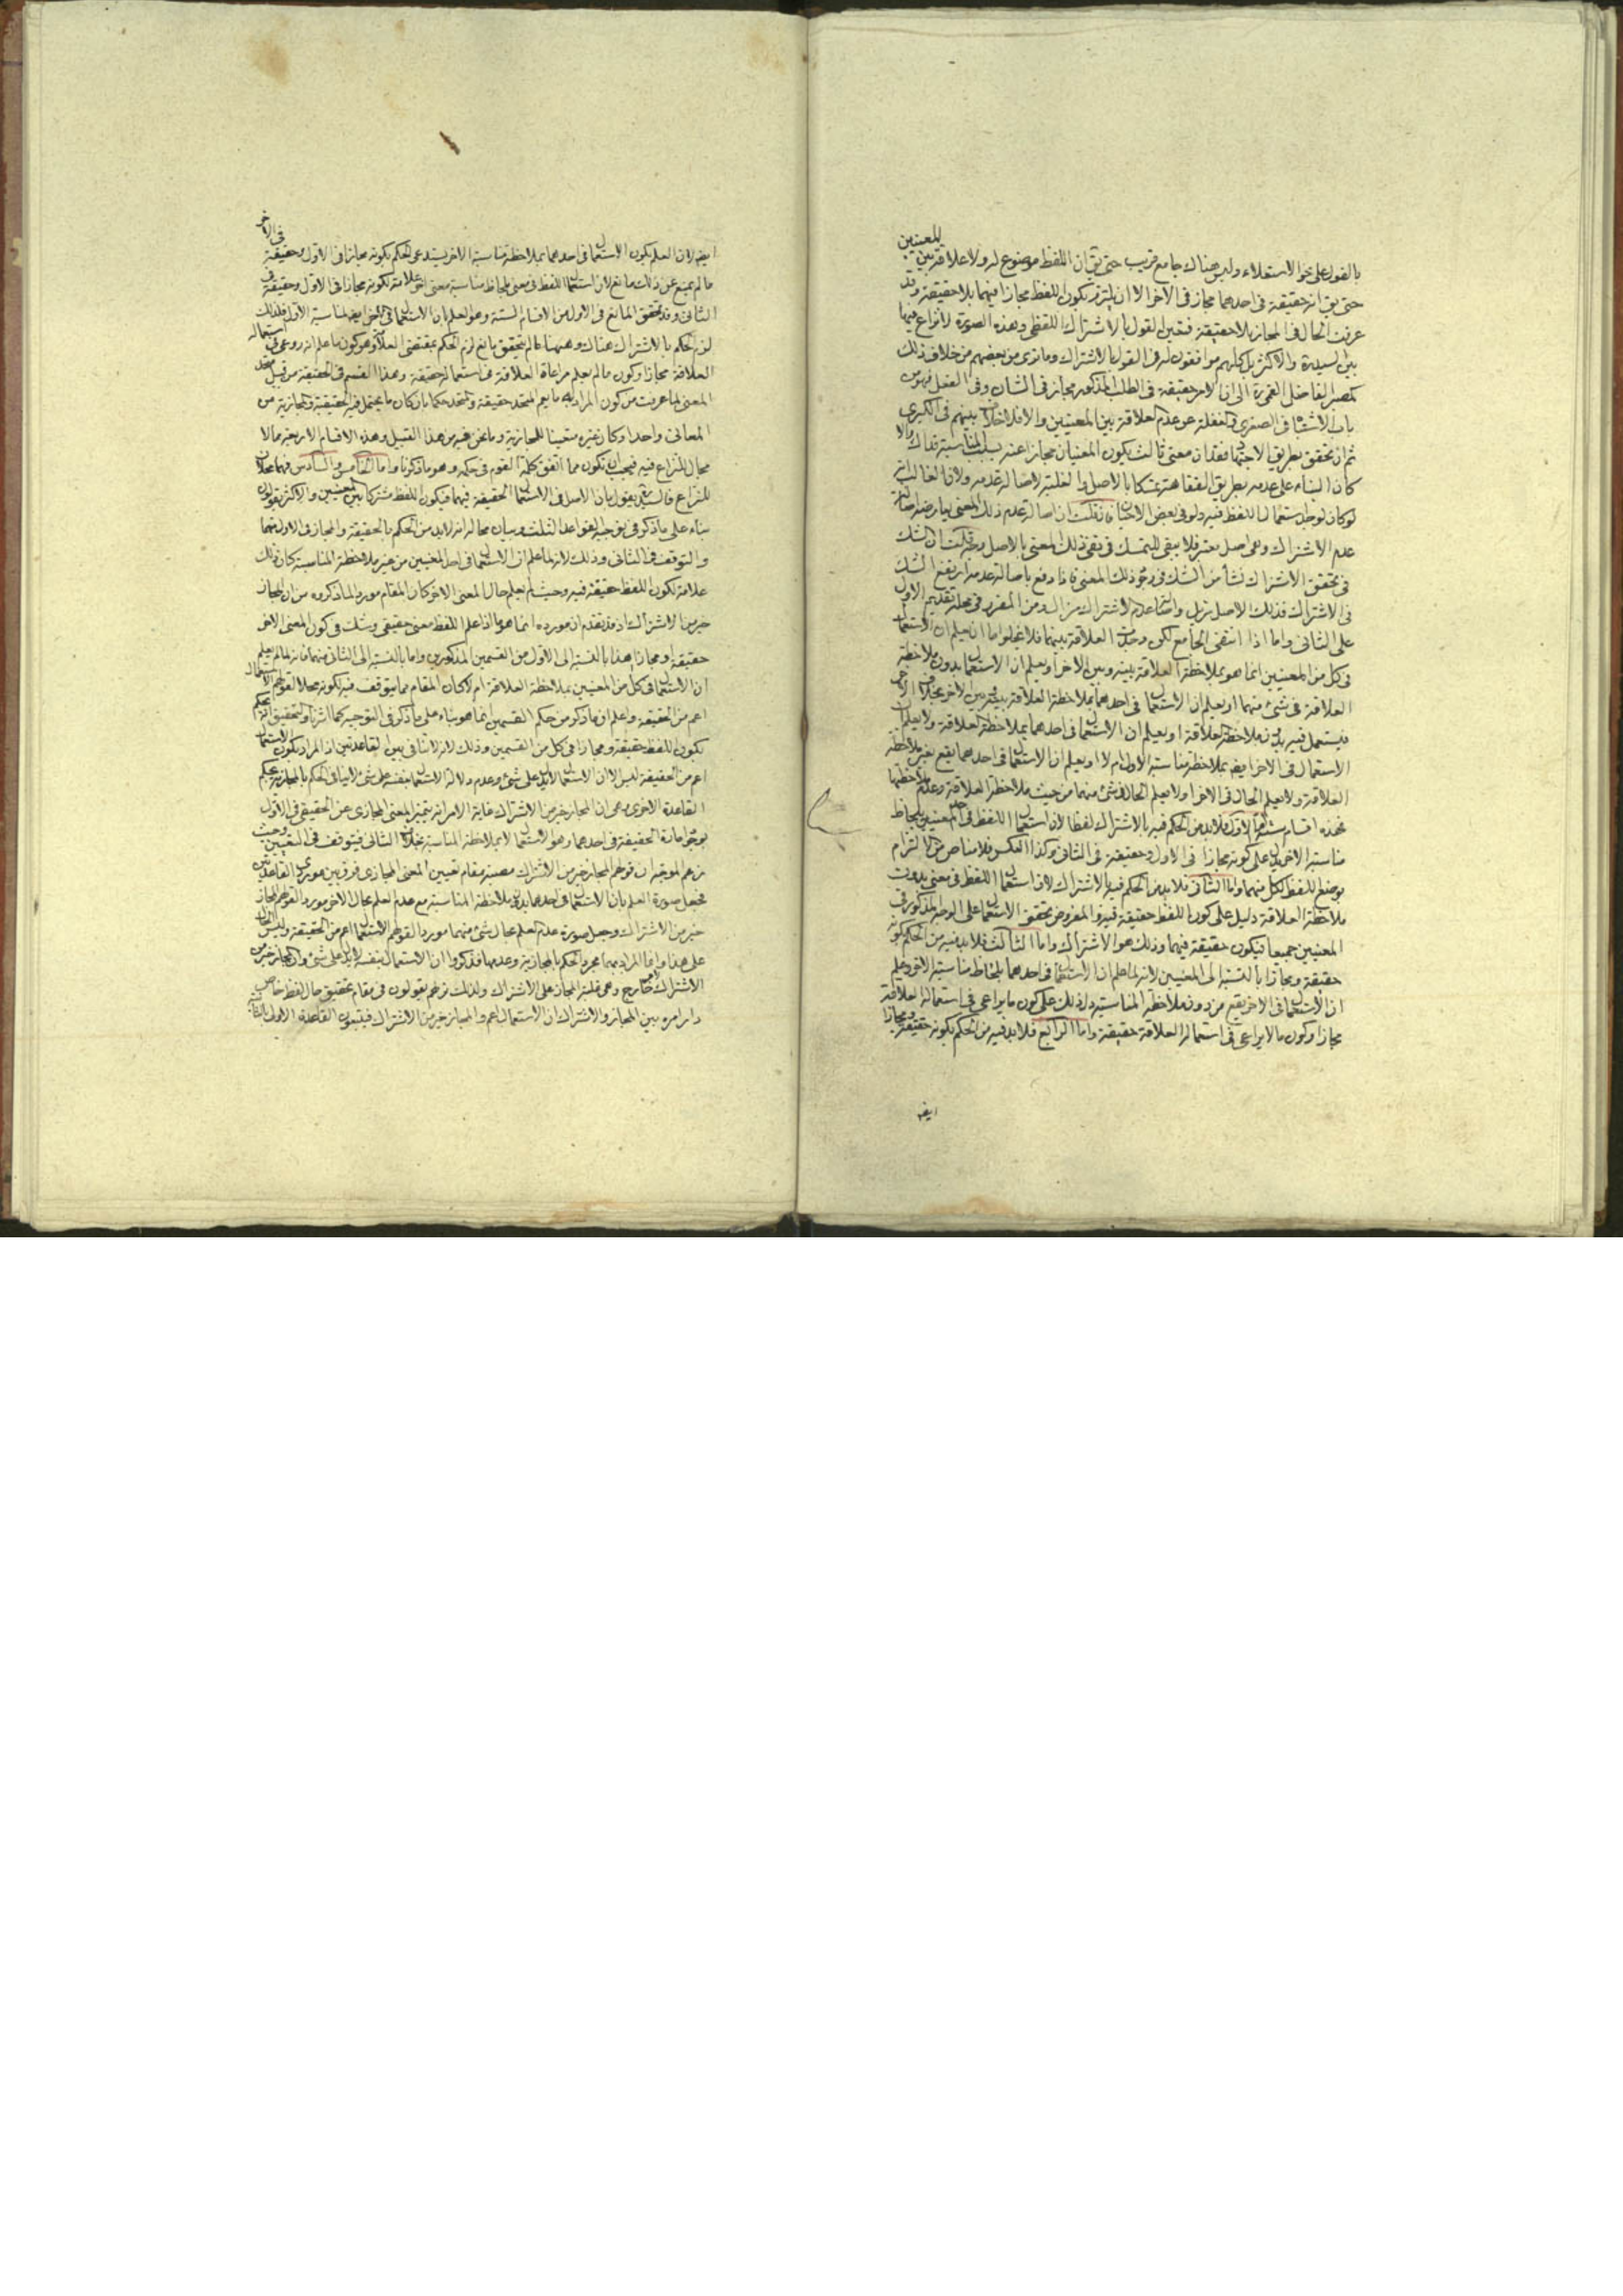 بالقول على نحو الاستعلاء وليس هناك جامع قريب حتى يق ان اللفظ موضوع له ولا علاقة بين المعنيين
حتى يق انه حقيقة في احدهما مجاز في الآخر الا ان يلتزم بكون اللفظ مجازا فيهما بلا حقيقة وقد
عرفت الحال في المجاز بلا حقيقة فتعين القول بالاشتراك اللفظي وهذه الصورة لا نزاع فيها
بين السيد ره والاكثر بل كلهم موافقون له في القول بالاشتراك وما ترى من بعضهم من خلاف ذلك
كمصير الفاضل القمي ره الى ان الامر حقيقة في الطلب المذكور مجاز في الشان وفي الفعل فهو من
باب الاشتباه في الصغرى والغفلة عن عدم العلاقة بين المعنيين والا فلا خلاف بينهم في الكبرى
ثم ان تحقق بطريق الاجتهاد فقدان معنى ثالث يكون المعنيان مجازا عنه بسبب المناسبة فذاك والا
كان البناء على عدمه بطريق الفقاهة تمسكا بالاصل والغلبة لاصالة عدمه ولان الغالب انه
لو كان لوجد استعمال اللفظ فيه ولو في بعض الاحيان فان قلت ان اصالة عدم ذلك المعنى يعارضه اصالة
عدم الاشتراك وهي اصل معتبر فلا يبقى للتمسك في نفي ذلك المعنى بالاصل وجه قلت ان الشك
في تحقق الاشتراك نشأ من الشك في وجود ذلك المعنى فاذا دفع باصالة عدمه ارتفع الشك
في الاشتراك فذلك الاصل مزيل واصالة عدم الاشتراك مزال ومن المقرر في محله تقديم الاول
على الثاني واما اذا انتفى الجامع لكن وجدت العلاقة بينهما فلا يخلو اما ان يعلم ان الاستعمال
في كل من المعنيين انما هو بملاحظة العلاقة بينه وبين الاخر او يعلم ان الاستعمال بدون ملاحظة
العلاقة في شئ منهما او يعلم ان الاستعمال في احدهما بملاحظة العلاقة بينه وبين الاخر بخلاف الآخر
فيستعمل فيه بدون ملاحظة العلاقة او يعلم ان الاستعمال في احدهما بملاحظة العلاقة ولا يعلم ان
الاستعمال في الاخر ايضا بملاحظة مناسبة الاول ام لا او يعلم ان الاستعمال في احدهما يقع بغير ملاحظة
العلاقة ولا يعلم الحال في الاخر او لا يعلم الحال في شئ منهما من حيث ملاحظة العلاقة وعدم ملاحظتها
فهذه اقسام ستة اما الاول فلا بد من الحكم فيه بالاشتراك لفظا لان استعمال اللفظ في احد المعنيين بلحاظ
مناسبة الاخر يدل على كونه مجازا في الاول وحقيقة في الثاني وكذا العكس فلا مناص من التزام
بوضع اللفظ لكل منهما واما الثاني فلا بد من الحكم فيه بالاشتراك لان استعمال اللفظ في معنى بدون
ملاحظة العلاقة دليل على كون اللفظ حقيقة فيه والمفروض تحقق الاستعمال على الوجه المذكور في
المعنيين جميعا فيكون حقيقة فيهما وذلك هو الاشتراك واما الثالث فلا بد فيه من الحكم بكونه
حقيقة ومجازا بالنسبة الى المعنيين لانه لما علم ان الاستعمال في احدهما بلحاظ مناسبة الاخر وعلم
ان الاستعمال في الاخر يقع من دون ملاحظة المناسبة دل ذلك على كون ما يراعى في استعماله العلاقة
مجازا وكون ما لا يراعى في استعماله العلاقة حقيقة واما الرابع فلا بد فيه من الحكم بكونه حقيقة ومجازا
ايضا
ايضا لان العلم بكون الاستعمال في احدهما بملاحظة مناسبة الاخر يستدعي الحكم بكونه مجازا في الاول وحقيقة في الاخر
ما لم يمنع عن ذلك مانع لان استعمال اللفظ في معنى بلحاظ مناسبة معنى اخر علامة لكونه مجازا في الاول وحقيقة في
الثاني وقد تحقق المانع في الاول من الاقسام الستة وهو العلم بان الاستعمال في الاخر ايضا لمناسبة الاول فلذلك
لزم الحكم بالاشتراك هناك وههنا لما لم يتحقق مانع لزم الحكم بمقتضى العلامة وهو كون ما علم انه روعي في استعماله
العلاقة مجازا وكون ما لم يعلم مراعاة العلاقة في استعماله حقيقة وهذا القسم في الحقيقة من قبيل متحد
المعنى لما عرفت من كون المراد به ما يعم المتحد حقيقة والمتحد حكما بان كان ما يحتمل فيه الحقيقة والمجازية من
المعاني واحدا وكان غيره متعينا للمجازية وما نحن فيه من هذا القبيل وهذه الاقسام الاربعة مما لا
مجال للنزاع فيه فيجب ان تكون مما اتفق كلمة القوم في حكمه وهو ما ذكرنا واما الخامس والسادس فهما محلان
للنزاع فالسيد يقول بان الاصل في الاستعمال الحقيقة فيهما فيكون اللفظ مشتركا بين المعنيين والاكثر يقولون
بناء على ما ذكر في توجيه القواعد الثلث وبيان محاله انه لا بد من الحكم بالحقيقة والمجاز في الاول منهما
والتوقف في الثاني وذلك لانه لما علم ان الاستعمال في احد المعنيين من غير ملاحظة المناسبة كان ذلك
علامة لكون اللفظ حقيقة فيه وحيث لم يعلم حال المعنى الاخر كان المقام موردا لما ذكروه من ان المجاز
خير من الاشتراك اذ قد تقدم ان مورده انما هو ما اذا علم للفظ معنى حقيقي وشك في كون المعنى الاخر
حقيقة او مجازا هذا بالنسبة الى الاول من القسمين المذكورين واما بالنسبة الى الثاني منهما فانه لما لم يعلم
ان الاستعمال في كل من المعنيين بملاحظة العلاقة ام لا كان المقام مما يتوقف فيه لكونه محلا لقولهم الاستعمال
اعم من الحقيقة واعلم ان ما ذكر من حكم القسمين انما هو بناء على ما ذكر في التوجيه كما اشرنا والتحقيق الحكم
بكون اللفظ حقيقة ومجازا في كل من القسمين وذلك لانه لا تنافي بين القاعدتين اذ المراد بكون الاستعمال
اعم من الحقيقة ليس الا ان الاستعمال لا يدل على شئ وعدم دلالة الاستعمال بنفسه على شئ لا ينافي الحكم بالمجازية بحكم
القاعدة الاخرى وهي ان المجاز خير من الاشتراك غاية الامر انه يتميز المعنى المجازي عن الحقيقي في الاول
بوجود امارة الحقيقة في احدهما وهو الاستعمال لا بملاحظة المناسبة بخلاف الثاني فيتوقف في التعيين وحيث
زعم الموجه ان قولهم المجاز خير من الاشتراك مصبه مقام تعيين المعنى المجازي فرق بين موردي القاعدتين
فجعل صورة العلم بان الاستعمال في احدهما بدون ملاحظة المناسبة مع عدم العلم بحال الاخر موردا لقولهم المجاز
خير من الاشتراك وجعل صورة عدم العلم بحال شئ منهما موردا لقولهم الاستعمال اعم من الحقيقة وليس الحال
على هذا وانما المراد بهما مجرد الحكم بالمجازية وعدمها فذكروا ان الاستعمال بنفسه لا يدل على شئ وان المجاز خير من
الاشتراك لامر خارج وهي غلبة المجاز على الاشتراك ولذلك تراهم يقولون في مقام تحقيق حال لفظ خاص
دار امره بين المجاز والاشتراك ان الاستعمال اعم والمجاز خير من الاشتراك فيتبعون القاعدة الاولى بالثانية